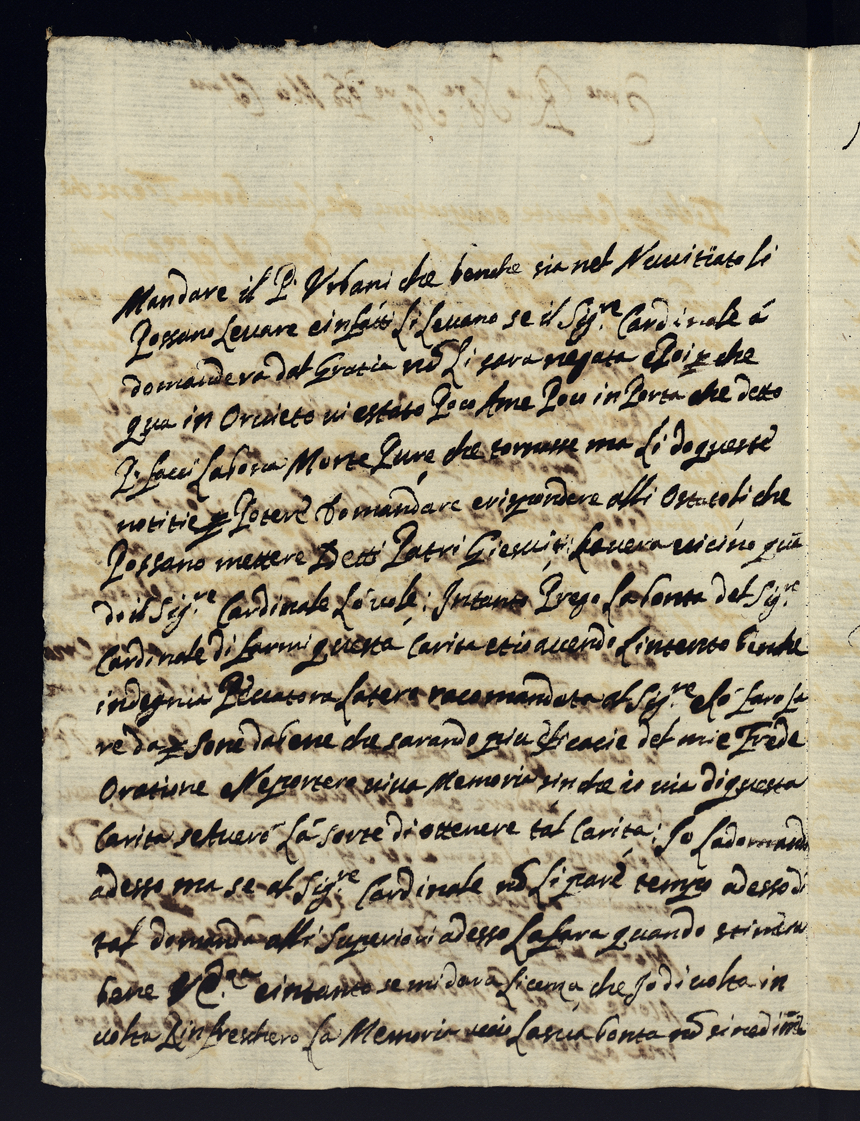 Mandare il P. Urbani che benche sia nel Nuvitiato li
Possano Levare e in fatti Li Levano se il Sig.re Cardinale á
domandera dal Gratia nõ Li sara negata e Poi p che
qua in Orvieto vi è stato Poco Ame Poco in Porta che detto
P. facci La bona Morte Pure che tornasse ma Li do queste
notitie p Potere Domandare e rispondere alli Ostacoli che
Possano mettere Detti Patri Giesuiti Lavera vicino quã
do il Sig.re Cardinale Lo vole; Intanto Prego La bonta del Sig.re
Cardinale di farmi questa Carita et io avendo L'intento benche
indegnia Peccatora L'atero racomandato al Sig.re e Lo faro fa
re da p sone da bene che sarando piu eficacie del mie Frede
Oratione e Ne portero viva Memoria sin che io via di questa
Carita se havero La sorte di ottenere tal Carita; Io La domando
adesso ma se al Sig.re Cardinale nõ Li pare tempo adesso di
tal domanda alli Superiori adesso La fara quando stimera
bene e intanto se mi dara Licenza che Io di volta in
volta Rinfreschero La Memoria La sua bonta nõ si